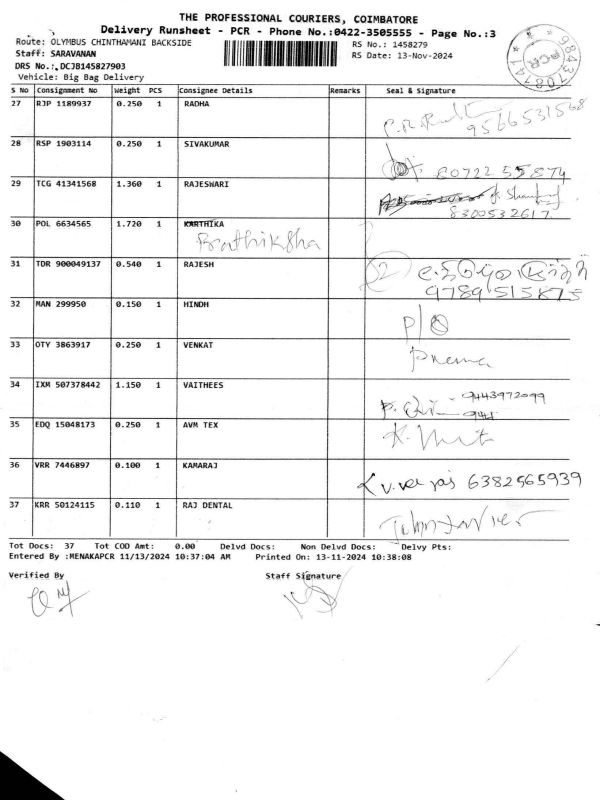 THE PROFESSIONAL COURIERS, COIMBATORE
Delivery Runsheet - PCR - Phone No.:0422-3505555 - Page No.:3
Route: OLYMBUS CHINTHAMANI BACKSIDE RS No.: 1458279
Staff: SARAVANAN RS Date: 13-Nov-2024
DRS No.: DCJB145827903
Vehicle: Big Bag Delivery
PCR
S No Consignment No Weight PCS Consignee Details Remarks Seal & Signature
27 RJP 1189937 0.250 1 RADHA
9566531568
28 RSP 1903114 0.250 1 SIVAKUMAR
80722 55874
29 TCG 41341568 1.360 1 RAJESWARI
8300532617
30 POL 6634565 1.720 1 KARTHIKA
Prathiksha
31 TDR 900049137 0.540 1 RAJESH
2
9789515875
32 MAN 299950 0.150 1 HINDH
33 OTY 3863917 0.250 1 VENKAT
Prema
34 IXM 507378442 1.150 1 VAITHEES
9443972099
35 EDQ 15048173 0.250 1 AVM TEX
36 VRR 7446897 0.100 1 KAMARAJ
6382565939
37 KRR 50124115 0.110 1 RAJ DENTAL
Tot Docs: 37 Tot COD Amt: 0.00 Delvd Docs: Non Delvd Docs: Delvy Pts:
Entered By :MENAKAPCR 11/13/2024 10:37:04 AM Printed On: 13-11-2024 10:38:08
Verified By Staff Signature